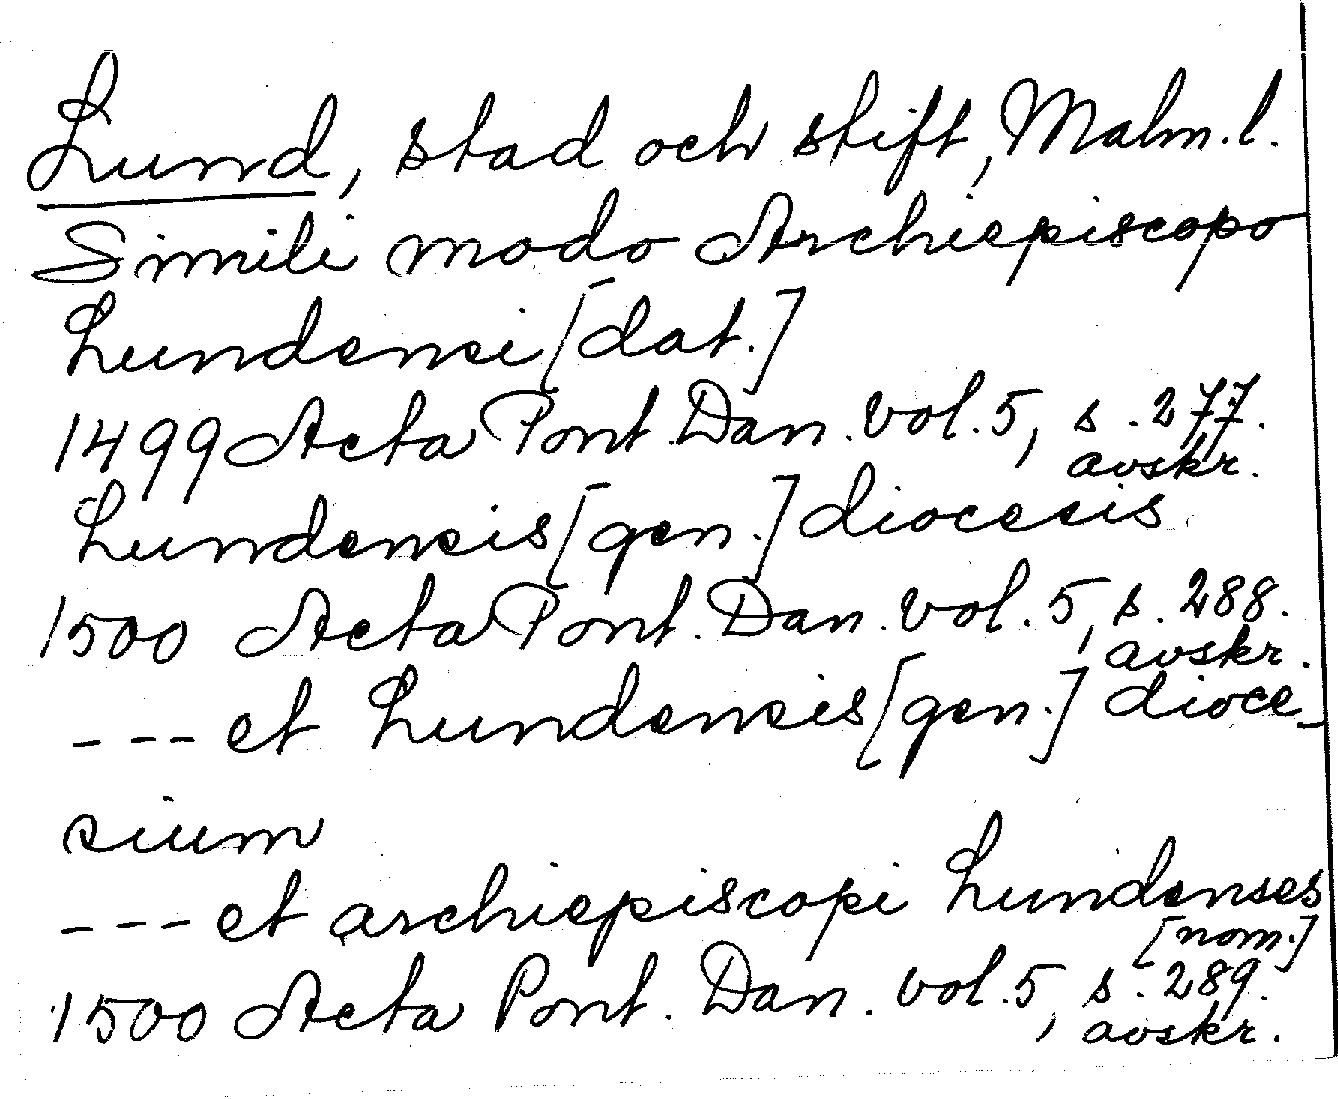 Lund, stad och stift, Malm.l.
Simili modo Archiepiscopo
Lundensi [dat.]
1499 Acta Pont. Dan. vol. 5, s. 277.
avskr.
Lundensis [gen.] diocesis
1500 Acta Pont. Dan. vol. 5, s. 288.
avskr.
--- et Lundensis [gen.] dioce-
sium
--- et archiepiscopi Lundenses
[nom.]
1500 Acta Pont. Dan. vol. 5, s. 289.
avskr.